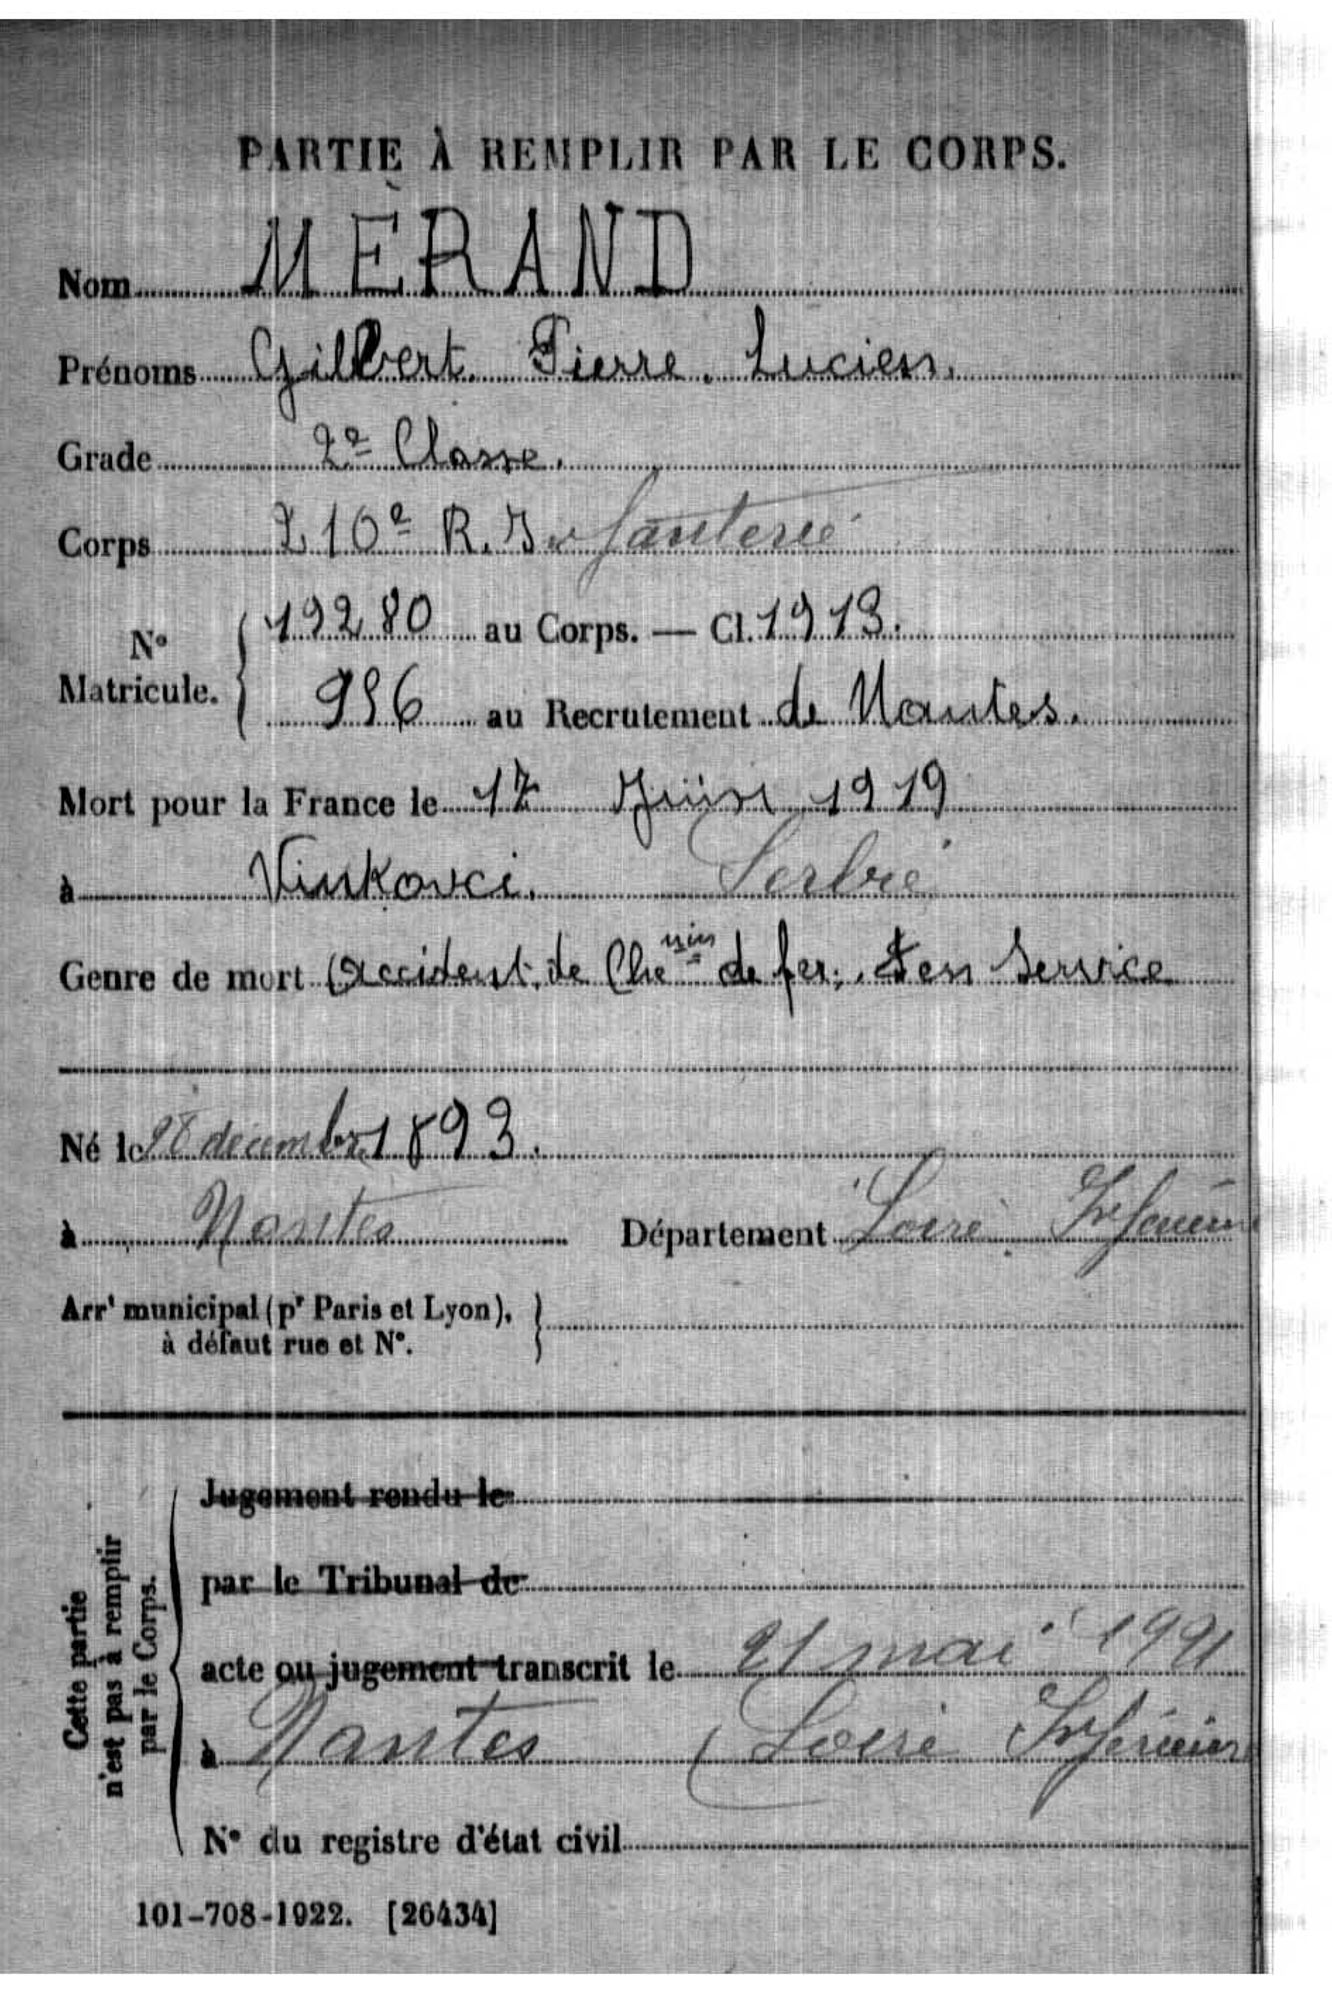 PARTIE À REMPLIR PAR LE CORPS.
Nom MÉRAND
Prénoms Gilbert. Pierre. Lucien.
Grade 2e Classe.
Corps 210e R. Infanterie
No Matricule. 19280 au Corps. — Cl. 1913.
996 au Recrutement de Nantes.
Mort pour la France le 17 Juin 1919
à Vinkovci. Serbie
Genre de mort Accident de Chemin de fer, en Service
Né le 28 décembre 1893.
à Nantes Département Loire Inférieure
Arrt municipal (pr Paris et Lyon),
à défaut rue et N°.
Cette partie
n'est pas à remplir
par le Corps.
Jugement rendu le
par le Tribunal de
acte ou jugement transcrit le 21 mai 1921
à Nantes (Loire Inférieure
N° du registre d'état civil
101-708-1922. [26434]